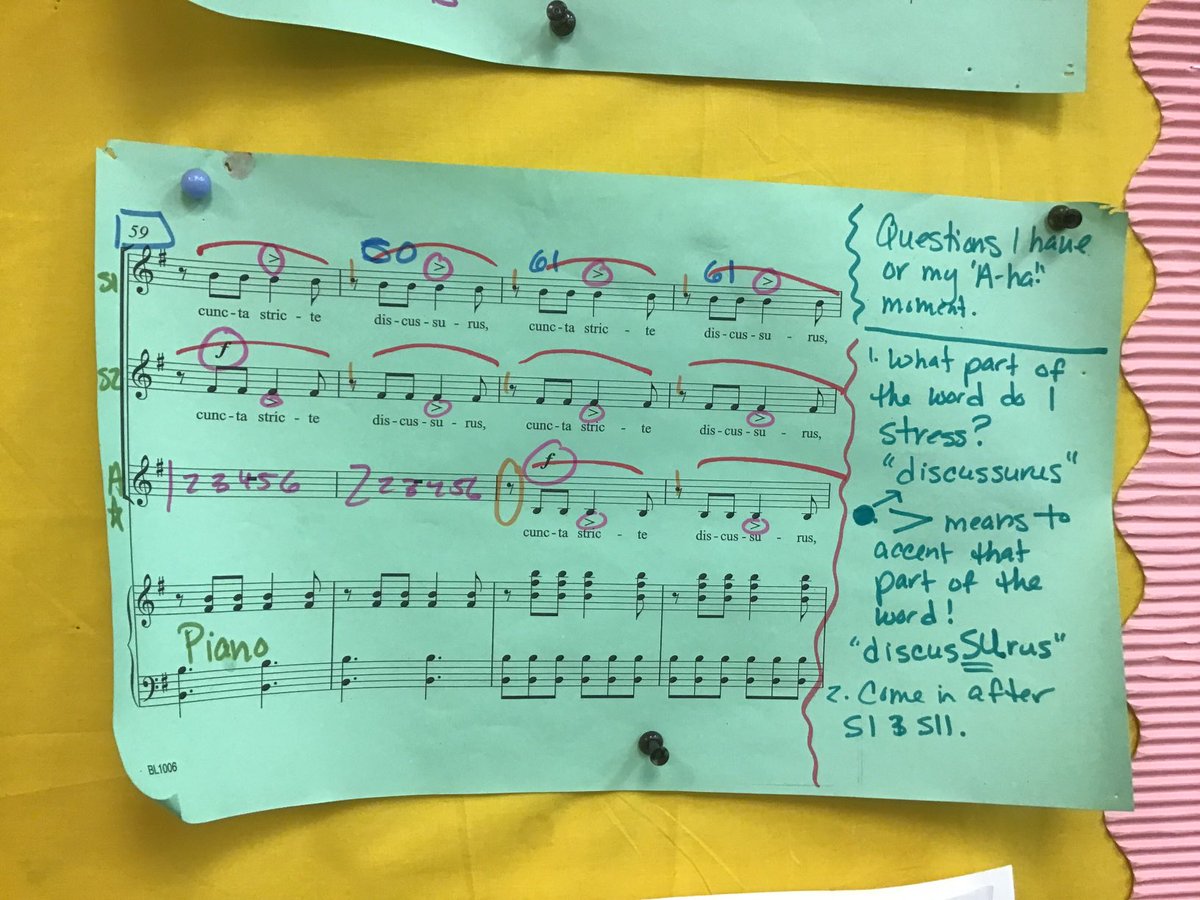 59
S1
60
61
61
cunc - ta stric - te dis - cus - su - rus, cunc - ta stric - te dis - cus - su - rus,
f
S2
cunc - ta stric - te dis - cus - su - rus, cunc - ta stric - te dis - cus - su - rus,
f
A
1 2 3 4 5 6 2 2 3 4 5 6
cunc - ta stric - te dis - cus - su - rus,
Piano
BL1006
Questions I have
or my "A-ha!"
moment.
1. What part of
the word do I
stress?
"discussurus"
> means to
accent that
part of the
word!
"discusSUrus"
2. Come in after
S1 & S11.